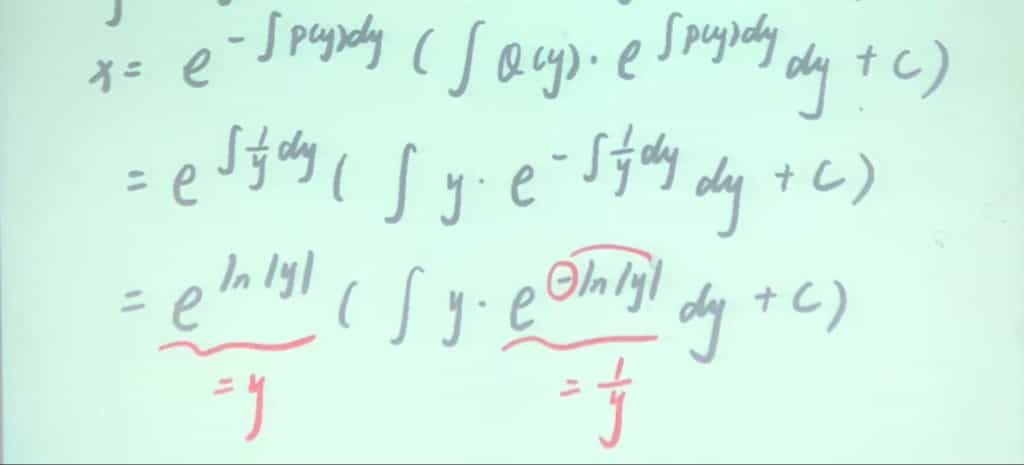 x = e^{-∫P(y)dy} (∫Q(y)·e^{∫P(y)dy} dy + C)
= e^{∫\frac{1}{y}dy} (∫y·e^{-∫\frac{1}{y}dy} dy + C)
= e^{ln|y|} (∫y·e^{-ln|y|} dy + C)
= y = \frac{1}{y}